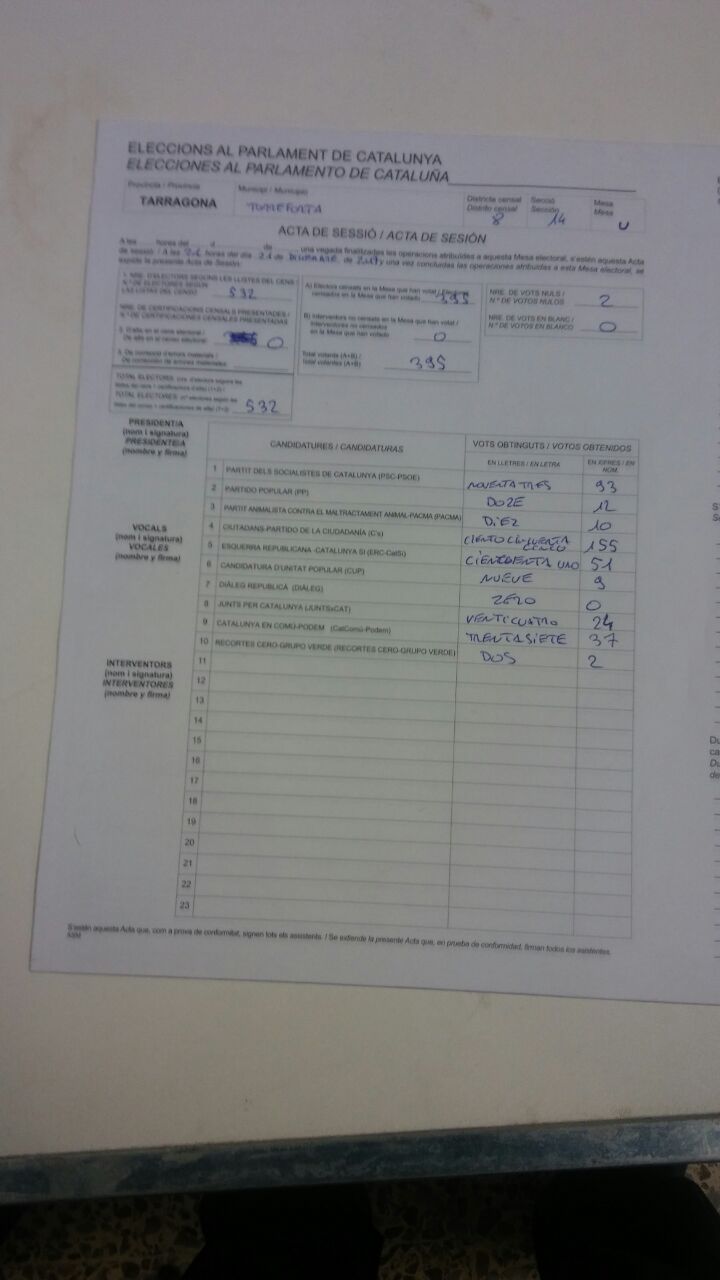 ELECCIONS AL PARLAMENT DE CATALUNYA
ELECCIONES AL PARLAMENTO DE CATALUÑA
Província / Provincia
Municipi / Municipio
Districte censal
Distrito censal
Secció
Sección
Mesa
Mesa
TARRAGONA
TORREFORTA
8
14
U
ACTA DE SESSIÓ / ACTA DE SESIÓN
A les hores del d de una vegada finalitzades les operacions atribuïdes a aquesta Mesa electoral, s'estén aquesta Acta
de sessió / A las horas del día 21 de de 2017 y una vez concluidas las operaciones atribuidas a esta Mesa electoral, se
expide la presente Acta de Sesión:
1. NRE. D'ELECTORS SEGONS LES LLISTES DEL CENS
N.º DE ELECTORES SEGÚN
LAS LISTAS DEL CENSO
532
NRE. DE CERTIFICACIONS CENSALS PRESENTADES /
N.º DE CERTIFICACIONES CENSALES PRESENTADAS
2. D'alta en el cens electoral /
De alta en el censo electoral
0
3. De correcció d'errors materials /
De corrección de errores materiales
TOTAL ELECTORS
TOTAL ELECTORES
532
A) Electors censats en la Mesa que han votat / Electores
censados en la Mesa que han votado
395
B) Interventors no censats en la Mesa que han votat /
Interventores no censados
en la Mesa que han votado
0
Total votants (A+B) /
Total votantes (A+B)
395
NRE. DE VOTS NULS /
N.º DE VOTOS NULOS
2
NRE. DE VOTS EN BLANC /
N.º DE VOTOS EN BLANCO
0
PRESIDENT/A
(nom i signatura)
PRESIDENTE/A
(nombre y firma)
VOCALS
(nom i signatura)
VOCALES
(nombre y firma)
INTERVENTORS
(nom i signatura)
INTERVENTORES
(nombre y firma)
CANDIDATURES / CANDIDATURAS
VOTS OBTINGUTS / VOTOS OBTENIDOS
EN LLETRES / EN LETRA
EN XIFRES / EN NÚM.
1 PARTIT DELS SOCIALISTES DE CATALUNYA (PSC-PSOE) NOVENTA TRES 93
2 PARTIDO POPULAR (PP) DOZE 12
3 PARTIT ANIMALISTA CONTRA EL MALTRACTAMENT ANIMAL-PACMA (PACMA) DIEZ 10
4 CIUTADANS-PARTIDO DE LA CIUDADANÍA (C's) CIENTO CINCUENTA CINCO 155
5 ESQUERRA REPUBLICANA-CATALUNYA SÍ (ERC-CatSí) 51
6 CANDIDATURA D'UNITAT POPULAR (CUP) NUEVE 9
7 DIÀLEG REPUBLICÀ (DIÀLEG) ZERO 0
8 JUNTS PER CATALUNYA (JUNTSxCAT) VENTICUATRO 24
9 CATALUNYA EN COMÚ-PODEM (CatComú-Podem) TRENTASIETE 37
10 RECORTES CERO-GRUPO VERDE (RECORTES CERO-GRUPO VERDE) DOS 2
11
12
13
14
15
16
17
18
19
20
21
22
23
S'estén aquesta Acta que, com a prova de conformitat, signen tots els assistents. / Se extiende la presente Acta que, en prueba de conformidad, firman todos los asistentes.